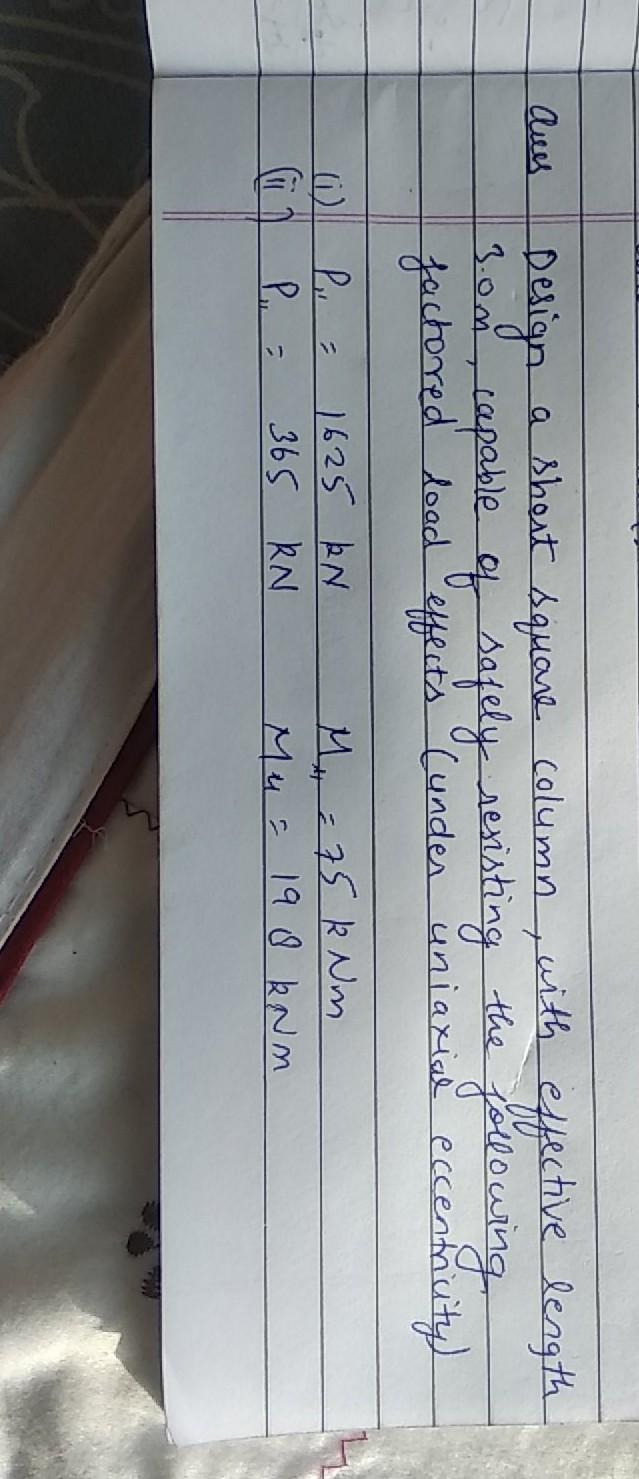 Ques Design a short square column, with effective length
3.0m, capable of safely resisting the following
factored load effects (under uniaxial eccentricity)
(i) Pu = 1625 kN Mu = 75 kNm
(ii) Pu = 365 kN Mu = 198 kNm